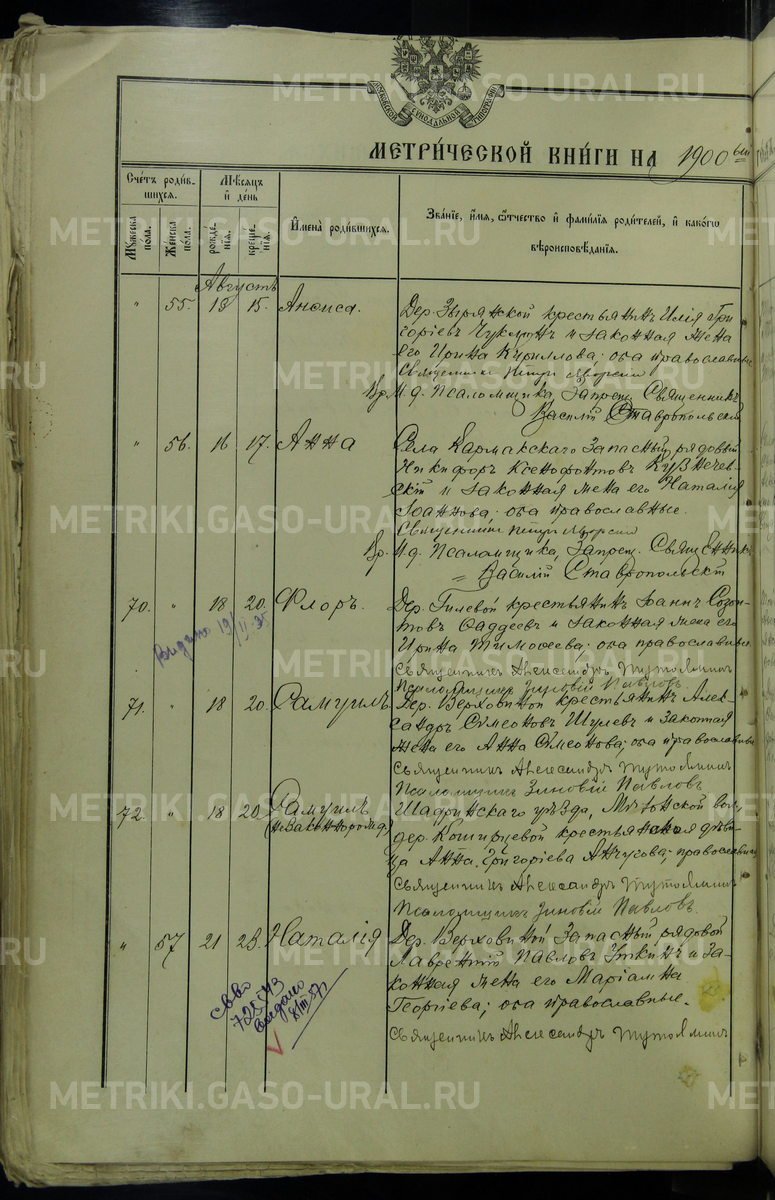 МЕТРИ́ЧЕСКОЙ КНИ́ГИ НА 1900ый
Сче́тъ роди́в-
шихся.
Му́жеска пола.
Же́нска пола.
Мѣ́сяцъ
и́ де́нь
рожде́нія.
креще́нія.
И́мена роди́вшихся.
Зва́нїе, и́мя, ѻ́тчество и́ фами́лїя роди́телей, и́ како́гѡ
вѣроисповѣ́данїя.
Августъ
" 55. 13 15. Аноиса.
Дер. Зырянской крестьянинъ Илія Гри
горіевъ Чуклинъ и законная жена
его Ирина Кириллова; оба православные
Священникъ Петръ
Вр. И. д. Псаломщика, Запрещ. Священникъ
Василій Ставропольскій
" 56. 16 17. Анна
Села Кармакскаго Запасный рядовый
Никифоръ Ксенофонтовъ
и законная жена его Наталія
Іоаннова; оба православные.
Священникъ Петръ
Вр. И. д. Псаломщика, Запрещ. Священникъ
Василій Ставропольскій
70. " 18 20. Флоръ.
Выдано
Дер. Гилевой крестьянинъ Іоаннъ Созон
товъ Фаддеевъ и законная жена его
Ирина Тимофеева; оба православные
Священникъ Александръ
Псаломщикъ Зиновій Павловъ.
71. " 18 20. Самуилъ
Дер. Верховиной крестьянинъ Алек-
сандръ Симеоновъ Шулевъ и законная
жена его Анна Симеонова; оба православные
Священникъ Александръ
Псаломщикъ Зиновій Павловъ
72. " 18 20 Самуилъ
(незаконнорожд.)
Шадринскаго уѣзда, вол.
дер. Коширцевой крестьянская дѣви-
ца Анна Григоріева Анчугова; православная
Священникъ Александръ
Псаломщикъ Зиновій Павловъ.
" 57 21 23. Наталія
Дер. Верховиной Запасный рядовой
Лаврентій Павловъ Уткинъ и за-
конная жена его Маріамна
Георгіева; оба православные.
Священникъ Александръ
выдано
METRIKI.GASO-URAL.RU